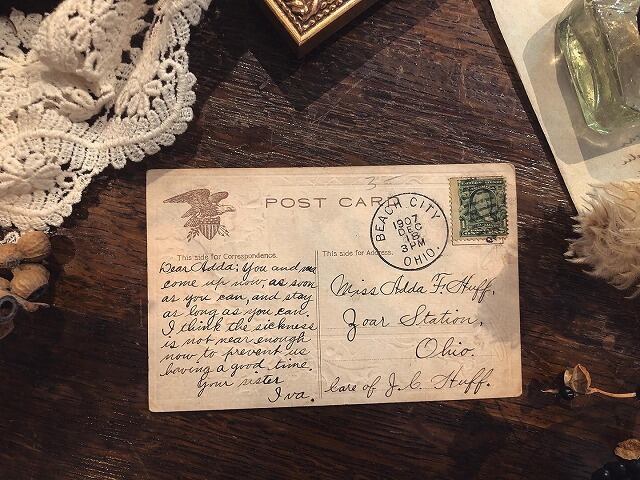 POST CARD
BEACH CITY
1907
DEC
18
3 PM
OHIO.
This side for Correspondence.
This side for Address.
Dear Adda; You and ma
come up now, as soon
as you can, and stay
as long as you can.
I think the sickness
is not near enough
now to prevent us
having a good time.
Your sister
Iva.
Miss Adda F. Huff,
Zoar Station,
Ohio.
Care of J. C. Huff.